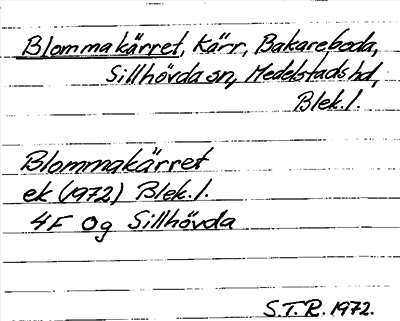 Blommakärret, Kärr, Bakareboda,
Sillhövda sn, Medelstads hd,
Blek.l.
Blommakärret
ek (1972) Blek.l.
4F 0g Sillhövda
S.T.R. 1972.